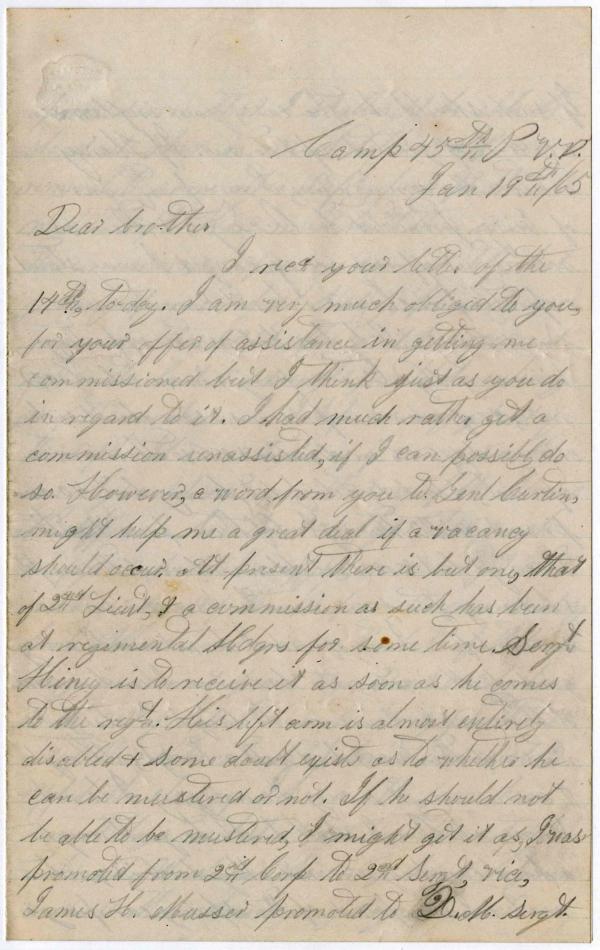 Camp 45th P.V.V.
Jan 19th/65
Dear brother
I recd your letter of the
14th, to-day. I am very much obliged to you,
for your offer of assistance in getting me
commissioned but I think just as you do
in regard to it. I had much rather get a
commission unassisted, if I can possibly do
so. However, a word from you to Genl Curtin,
might help me a great deal if a vacancy
should occur. At present there is but one, that
of 2nd Lieut, & a commission as such has been
at regimental Hdqrs for some time. Sergt
Heney is to receive it as soon as he comes
to the regt. His left arm is almost entirely
disabled & some doubt exists as to whether he
can be mustered or not. If he should not
be able to be mustered, I might get it as, I was
promoted from 2nd Corp to 2nd Sergt, vice,
James H. Musser promoted to Q.M. Sergt.